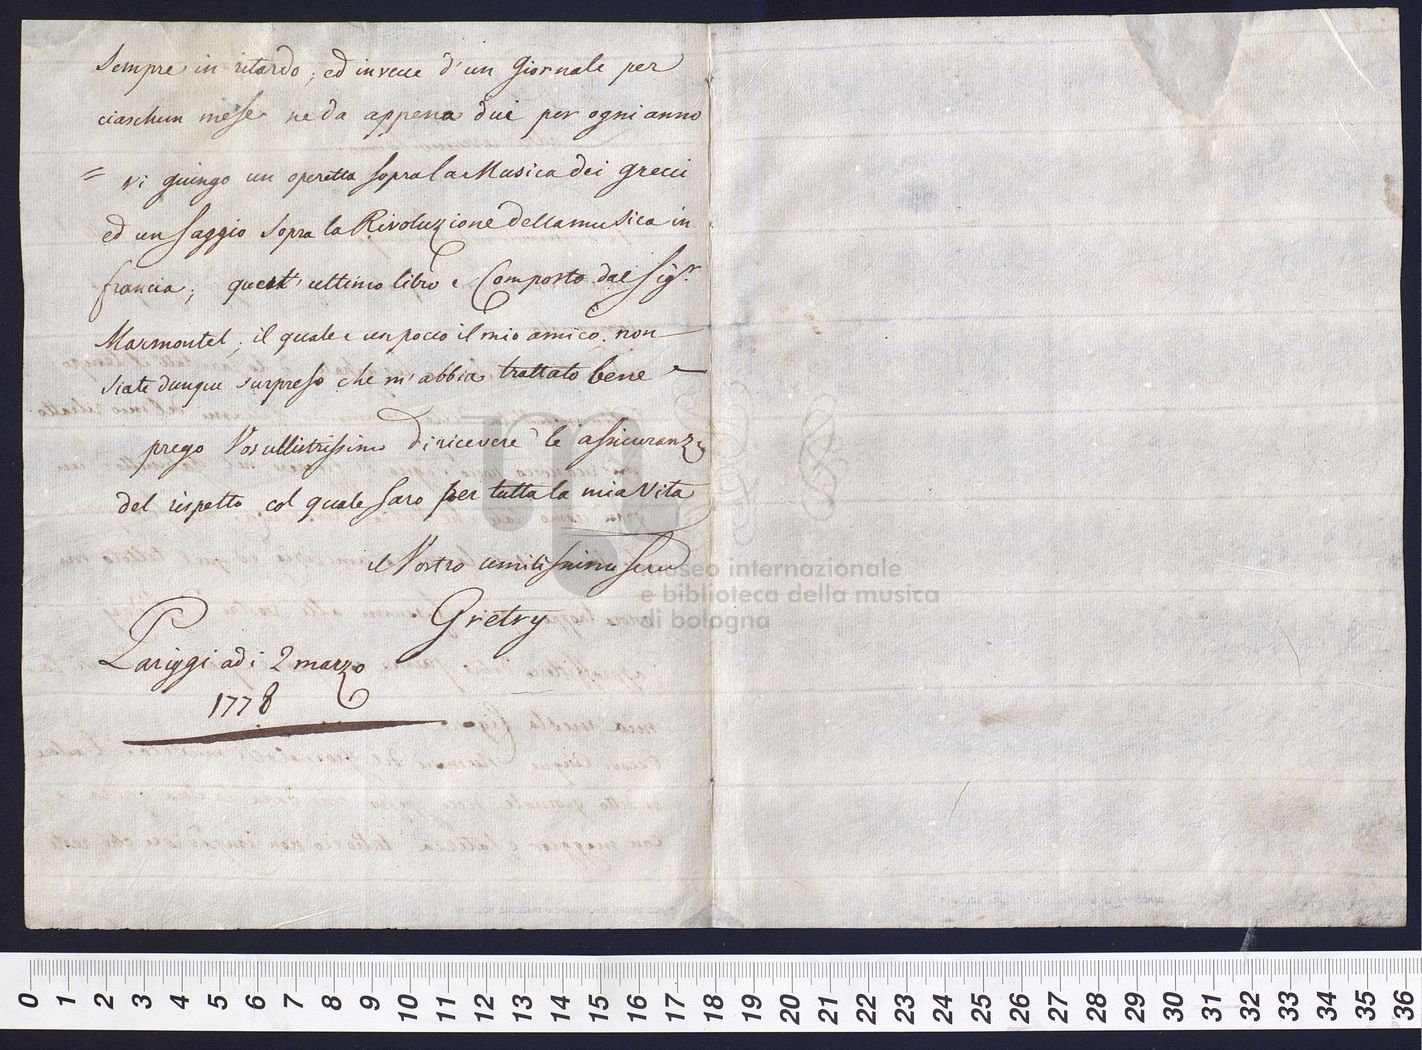 sempre in ritardo; ed invece d'un Giornale per
ciaschun mese ne da appena dui per ogni anno
= vi giungo un operetta sopra la Musica dei greci
ed un saggio sopra la Rivoluzione della musica in
francia; quest' ultimo libro e Composto dal Sigr
Marmontel; il quale e un poco il mio amico. non
siate dunque surpreso che m'abbia trattato bene
prego Vosullustrissimo di ricevere le assicuranze
del rispetto col quale saro per tutta la mia vita
il Vostro umilissimo
Gretry
Pariggi adi 2 marzo
1778
museo internazionale
e biblioteca della musica
di bologna
0 1 2 3 4 5 6 7 8 9 10 11 12 13 14 15 16 17 18 19 20 21 22 23 24 25 26 27 28 29 30 31 32 33 34 35 36